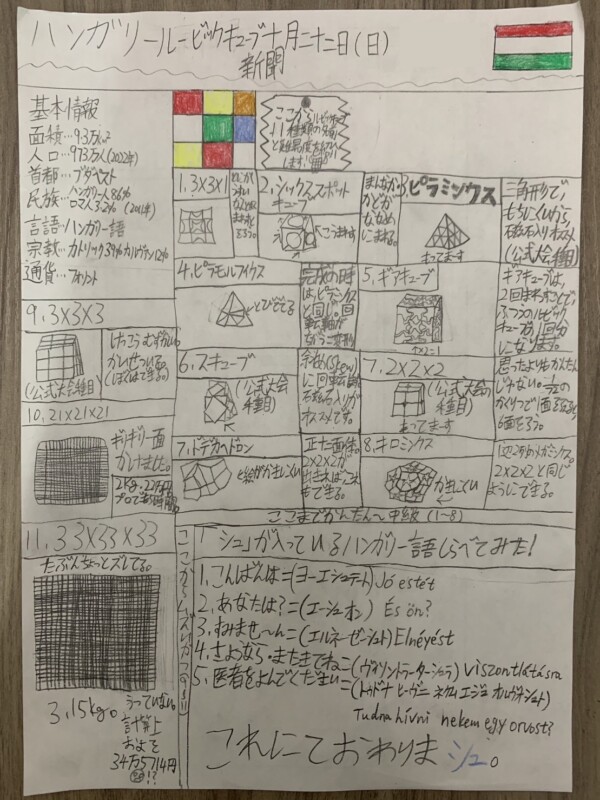 ハンガリールービックキューブ十月二十二日(日)
新聞
基本情報
面積…9.3万km²
人口…973万人(2022年)
首都…ブダペスト
民族…ハンガリー人86%
ロマ人3.2% (2011年)
言語…ハンガリー語
宗教…カトリック39%カルヴァン12%
通貨…フォリント
ここから
ルービックキューブ
11種類の
します!
1.3×3×1
2.シックススポット
キューブ
←こうまわす
まんなか
かどが
ななめ
にまわる。
3.ピラミンクス
まってます
三角形で、
もちにくいから、
磁石入りオススメ
(公式大会種目)
4.ピラモルフィクス
とびでてる
完成の時
は、ピラミンクス
と同じ。回
転軸が
ちがう三変形
5.ギアキューブ
ギアキューブは、
2回まわすことで、
ふつうのルービック
キューブの1回分
になります。
6.スキューブ
(公式大会
種目)
余め(skew)
に回転
磁石入りが
オススメです。
7.2×2×2
(公式大会の
種目)
まってます
思ったよりもかんたん
じゃない。1/2の
かくりつで1面をそろえると
6面そろう。
7.ドデカヘドロン
←絵がかきにくい
正十二面体。
2×2×2が
出来ればこれ
もできる。
8.キロミンクス
かきにくい
2×2×2と同じ
ようにできる。
ここまでかんたん〜中級(1〜8)
9.3×3×3
(公式大会種目)
けっこうむずかしい。
かいせついる。
(ぼくはできる。)
10.21×21×21
ギリギリ一面
かけました。
11.33×33×33
たぶんちょっとズレてる。
3.15kg。
うっていない。
計算上
およそ
34万5714円
!?
ここからムズい
「シュ」が入っているハンガリー語しらべてみた!
1.こんばんは=(ヨーエシュテート) Jó estét
2.あなたは?=(エーシュオン) És ön?
3.すみませ〜ん=(エルネーゼーシュト) Elnéyést
4.さようなら・またきてね=(ヴィソントラーターシュラ) viszontlátásra
5.医者をよんでください=(トゥドナ ヒーヴニ ネケム エジュ オルヴォシュト)
Tudna hívni nekem egy orvost?
これにておわりまシュ。